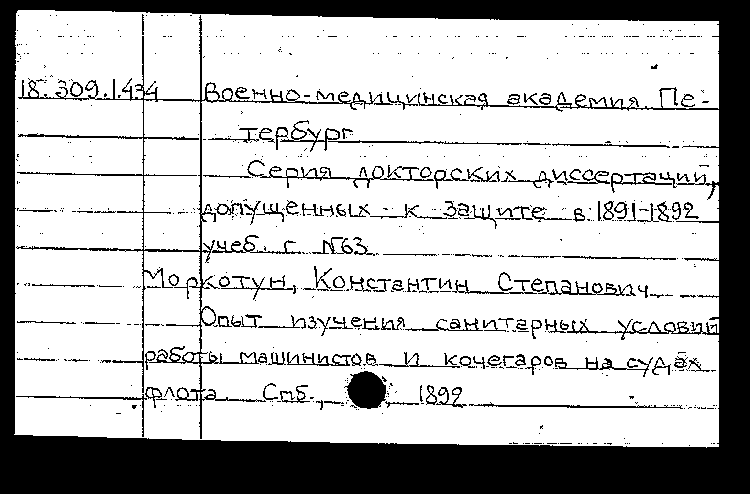 18.309.1.434 Военно-медицинская академия. Пе-
тербург
Серия докторских диссертаций,
допущенных к защите в 1891-1892
учеб. г. №63
Моркотун, Константин Степанович
Опыт изучения санитарных условий
работы машинистов и кочегаров на судах
флота. Спб., 1892